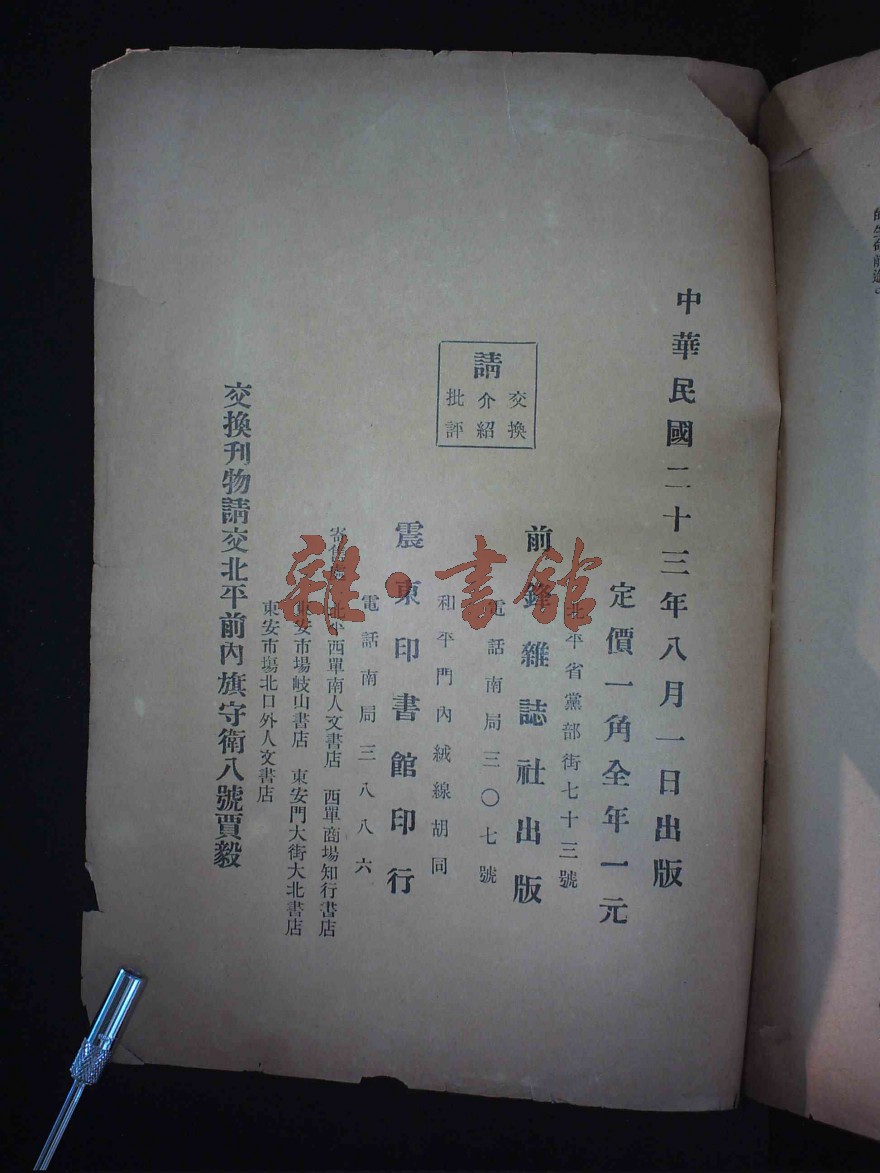 中華民國二十三年八月一日出版
定價一角全年一元
北平省黨部街七十三號
前鋒雜誌社出版
電話南局三〇七號
請
交換
介紹
批評
和平門內絨線胡同
震東印書館印行
電話南局三八八六
寄售處 北平西單南人文書店 西單商場知行書店
東安市場岐山書店 東安門大街大北書店
東安市場北口外人文書店
交換刊物請交北平前內旗守衛八號賈毅
雜·書館